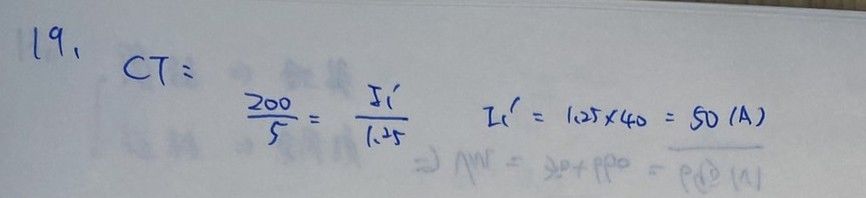 19.
CT:
200/5 = I₁'/1.25 I₁' = 1.25×40 = 50 (A)